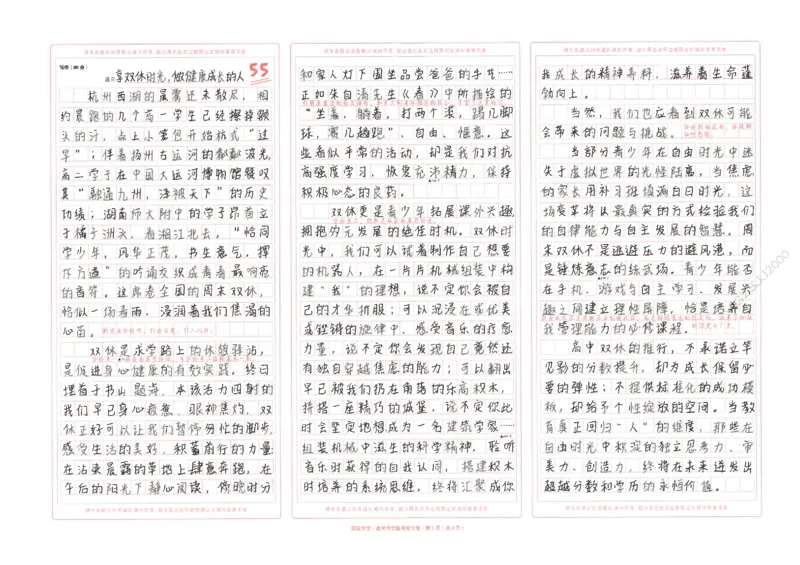 写作(60分)
享双休时光,做健康成长的人
55
杭州西湖的晨雾还未散尽,相
约晨跑的几个高一学生已经擦掉额
头的汗,点上小笼包开始格式“过
早”;伴着扬州古运河的粼粼波光,
高二学子在中国大运河博物馆餐叹
其“融通九州,泽被天下”的历史
功绩;湖南师大附中的学子昂首立
于橘子洲头,看湘江北去,“恰同
学少年,风华正茂,书生意气,挥
斥方遒”的吟诵交织成青春最响亮
的音符。这席卷全国的周末双休,
恰似一场春雨,浸润着我们焦渴的
心茵。
双休是求学路上的休憩驿站,
是促进身心健康的有效实践,终日
埋首于书山题海,本该活力四射的
我们早已身心疲惫、眼神焦灼。双
休正好可以让我们暂停匆忙的脚步,
感受生活的美好,积蓄前行的力量:
在沾染晨露的草地上肆意奔跑,在
午后的阳光下静心阅读,傍晚时分
和家人灯下围坐品尝爸爸的手艺……
正如朱自清先生《春》中所描绘的
“坐着,躺着,打两个滚,踢几脚
球,赛几趟跑”,自由、惬意。这
些看似平常的活动,却是我们对抗
高强度学习,恢复充沛精力,保持
积极心态的良药。
双休更是青少年拓展课外兴趣,
拥抱多元发展的绝佳时机。双休时
光中,我们可以试着制作自己想要
的机器人,在一片片机械组装中构
建“我”的理想,说不定你会被自
己的才华折服;可以沉浸在或优美
或铿锵的旋律中,感受音乐的疗愈
力量,说不定你会发现自己竟然还
有独自穿越焦虑的能力;可以翻出
早已被我们扔在角落的乐高积木,
拼搭一座精巧的城堡,说不定你此
时会坚定地想成为一名建筑学家……
组装机械中滋生的科学精神,聆听
音乐时获得的自我认同,搭建积木
时培养的系统思维,终将汇聚成你
我成长的精神养料,滋养着生命蓬
勃向上。
当然,我们也应看到双休可能
会带来的问题与挑战。
当部分青少年在自由时光中迷
失于虚拟世界的光怪陆离,当焦虑
的家长用补习班填满白日时光,这
场变革将以最真实的方式检验我们
的自律能力与自主发展的智慧。周
末双休不是逃避压力的避风港,而
是锤炼意志的练武场。青少年能否
在手机、游戏与自主学习、发展兴
趣之间建立理性屏障,恰是培养自
我管理能力的必修课程。
高中双休的推行,不承诺立竿
见影的分数提升,却为成长保留必
要的弹性;不提供标准化的成功模
板,却给予个性绽放的空间。当教
育真正回归“人”的维度,那些在
自由时光中积淀的独立思考力、审
美力、创造力,终将在未来迸发出
超越分数和学历的永恒价值。